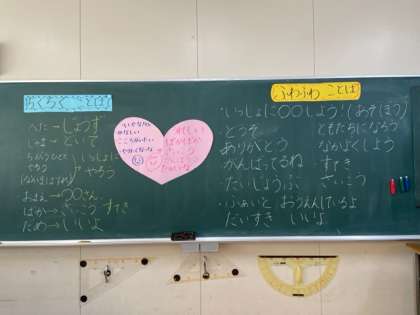 ちくちく ことば
へた→じょうず
じゃま→どいて
ちがうひと
やろう
いっしょに
やろう
(なかまはずれ)
おまえ→〇〇さん
ばか→さいこう すてき
だめ→いいよ
いやなきもち
かなしい
うれしい
ぽかぽか
ふわふわ ことば
・いっしょに〇〇しよう!(あそぼう)
どうぞ ともだちになろう
ありがとう なかよくしよう
がんばってるね すてき
だいじょうぶ さいこう
・ふぁいと おうえんしているよ
だいすき いいよ